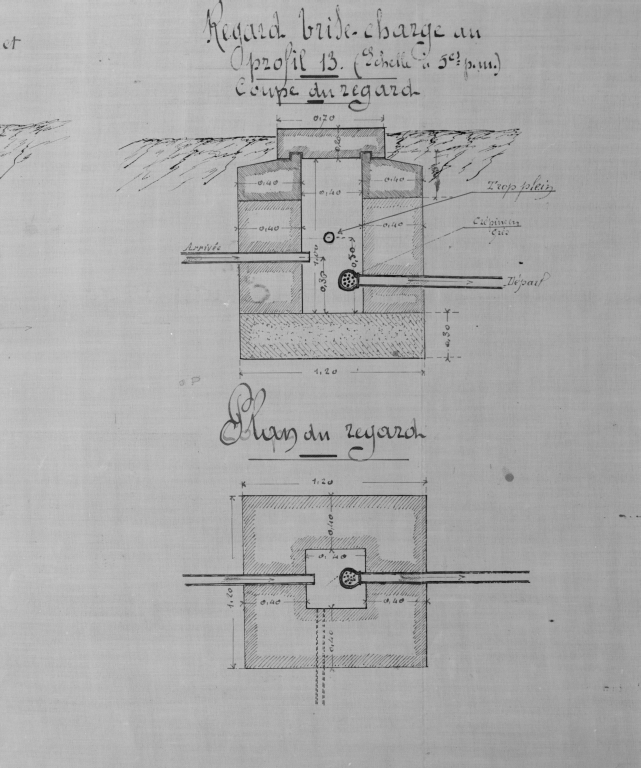 et
Regard brise-charge au
profil 13. (Echelle à 5cs p.m.)
Coupe du regard
0,70
0,20
0,40
0,40
0,40
Trop plein
0,40
0,40
Crépine en
Arrivée
0,50
0,30
Départ
0,30
1,20
Plan du regard
1,20
0,40
0,40
1,20
0,40
0,40
0,40